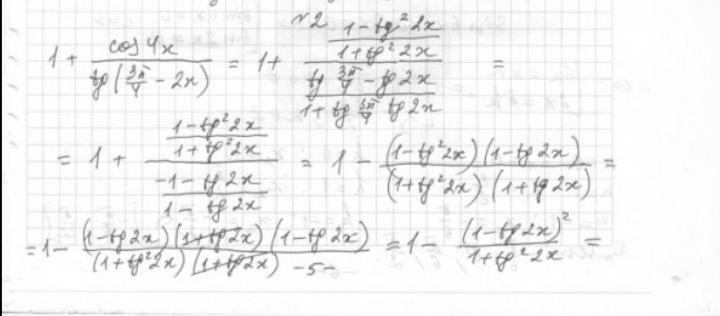 №2
1 + \frac{cos 4x}{tg(\frac{3π}{4} - 2x)} = 1 + \frac{\frac{1 - tg² 2x}{1 + tg² 2x}}{\frac{tg \frac{3π}{4} - tg 2x}{1 + tg \frac{3π}{4} tg 2x}} =
= 1 + \frac{\frac{1 - tg² 2x}{1 + tg² 2x}}{\frac{-1 - tg 2x}{1 - tg 2x}} = 1 - \frac{(1 - tg² 2x)(1 - tg 2x)}{(1 + tg² 2x)(1 + tg 2x)} =
= 1 - \frac{(1 - tg 2x)(1 + tg 2x)(1 - tg 2x)}{(1 + tg² 2x)(1 + tg 2x)} = 1 - \frac{(1 - tg 2x)²}{1 + tg² 2x} =
-5-